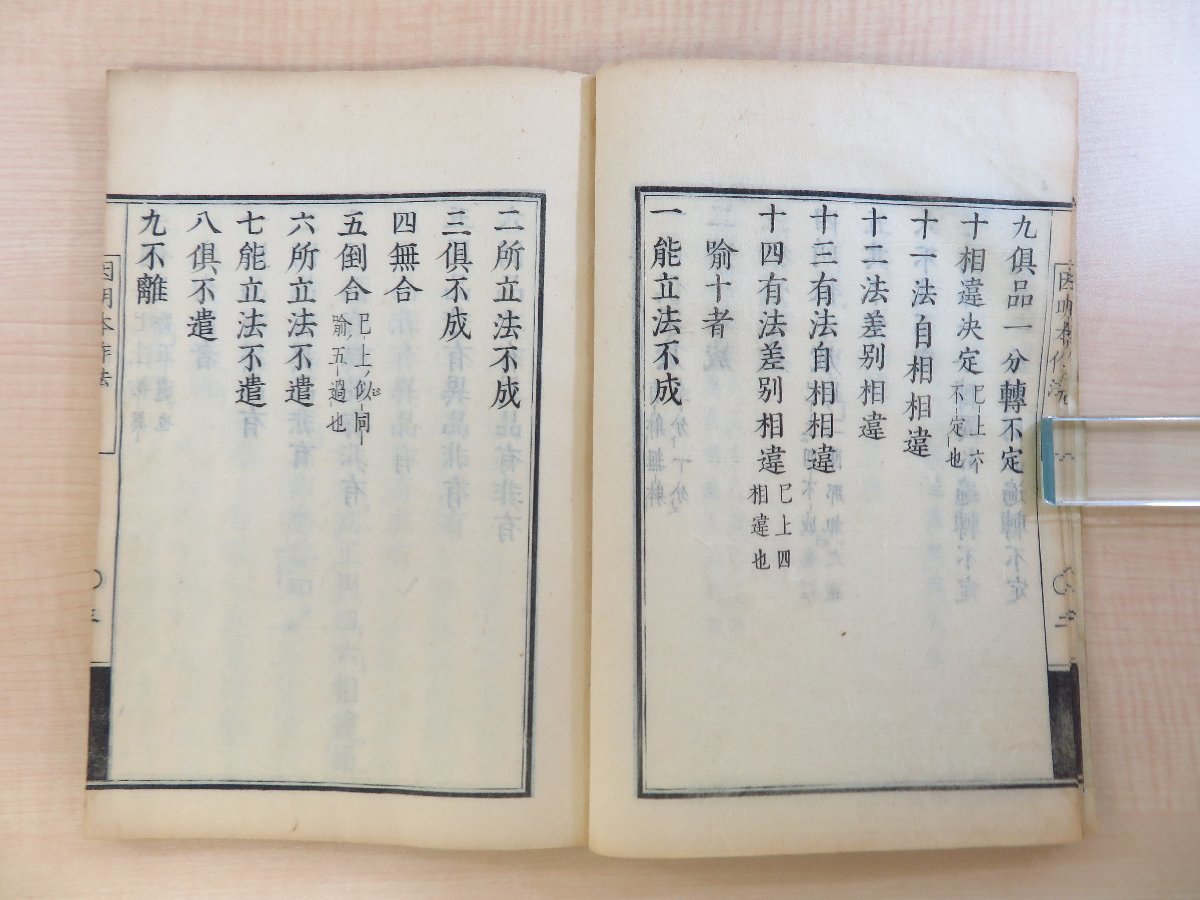 九俱品一分轉不定
十相違決定
巳上六
不定也
十一法自相相違
十二法差別相違
十三有法自相相違
十四有法差別相違
巳上四
相違也
喻十者
一能立法不成
二所立法不成
三俱不成
四無合
五倒合
巳上似同
喻五過也
六所立法不遣
七能立法不遣
八俱不遣
九不離